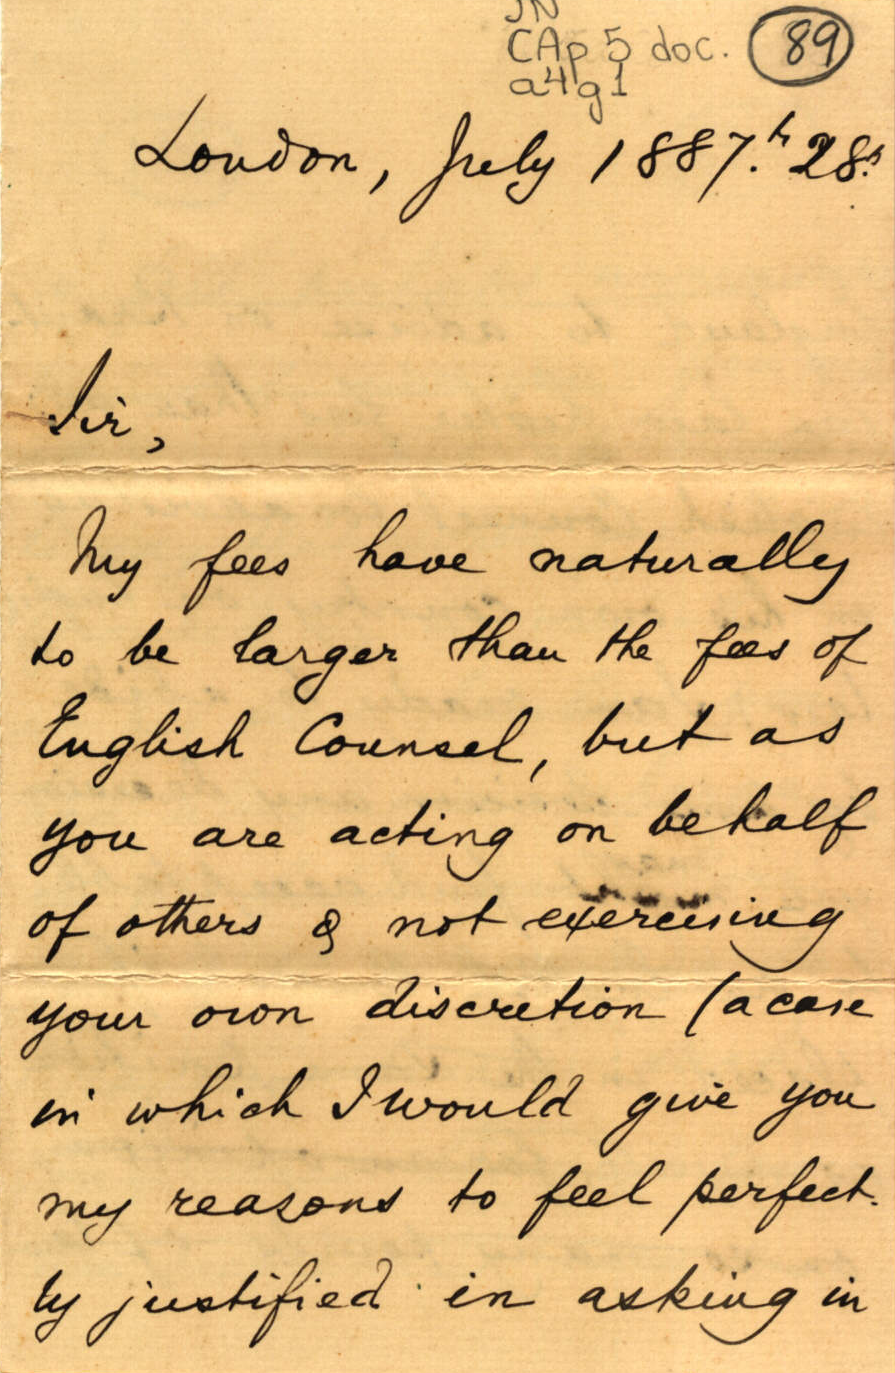 JN
CAp 5 doc. 89
a4g1
London, July 1887.th 28.
Sir,
My fees have naturally
to be larger than the fees of
English Counsel, but as
you are acting on behalf
of others & not exercising
your own discretion (a case
in which I would give you
my reasons to feel perfect-
ly justified in asking in